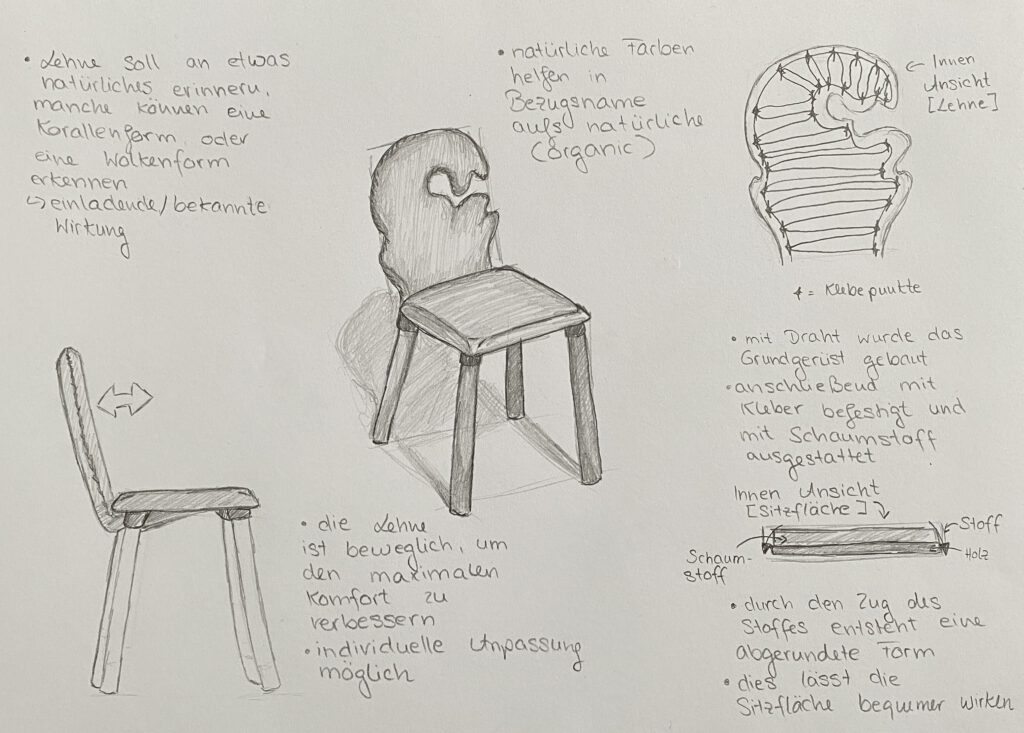 • Lehne soll an etwas
natürliches erinnern,
manche können eine
Korallenform oder
eine Wolkenform
erkennen
↳ einladende/bekannte
Wirkung
• natürliche Farben
helfen in
Bezugsname
aufs natürliche
(organic)
← Innen
Ansicht
[Lehne]
= Klebepunkte
• mit Draht wurde das
Grundgerüst gebaut
• anschließend mit
Kleber befestigt und
mit Schaumstoff
ausgestattet
Innen Ansicht
[Sitzfläche]
Stoff
Holz
Schaum-
stoff
• durch den Zug des
Stoffes entsteht eine
abgerundete Form
• dies lässt die
Sitzfläche bequemer wirken
• die Lehne
ist beweglich, um
den maximalen
Komfort zu
verbessern
• individuelle Anpassung
möglich